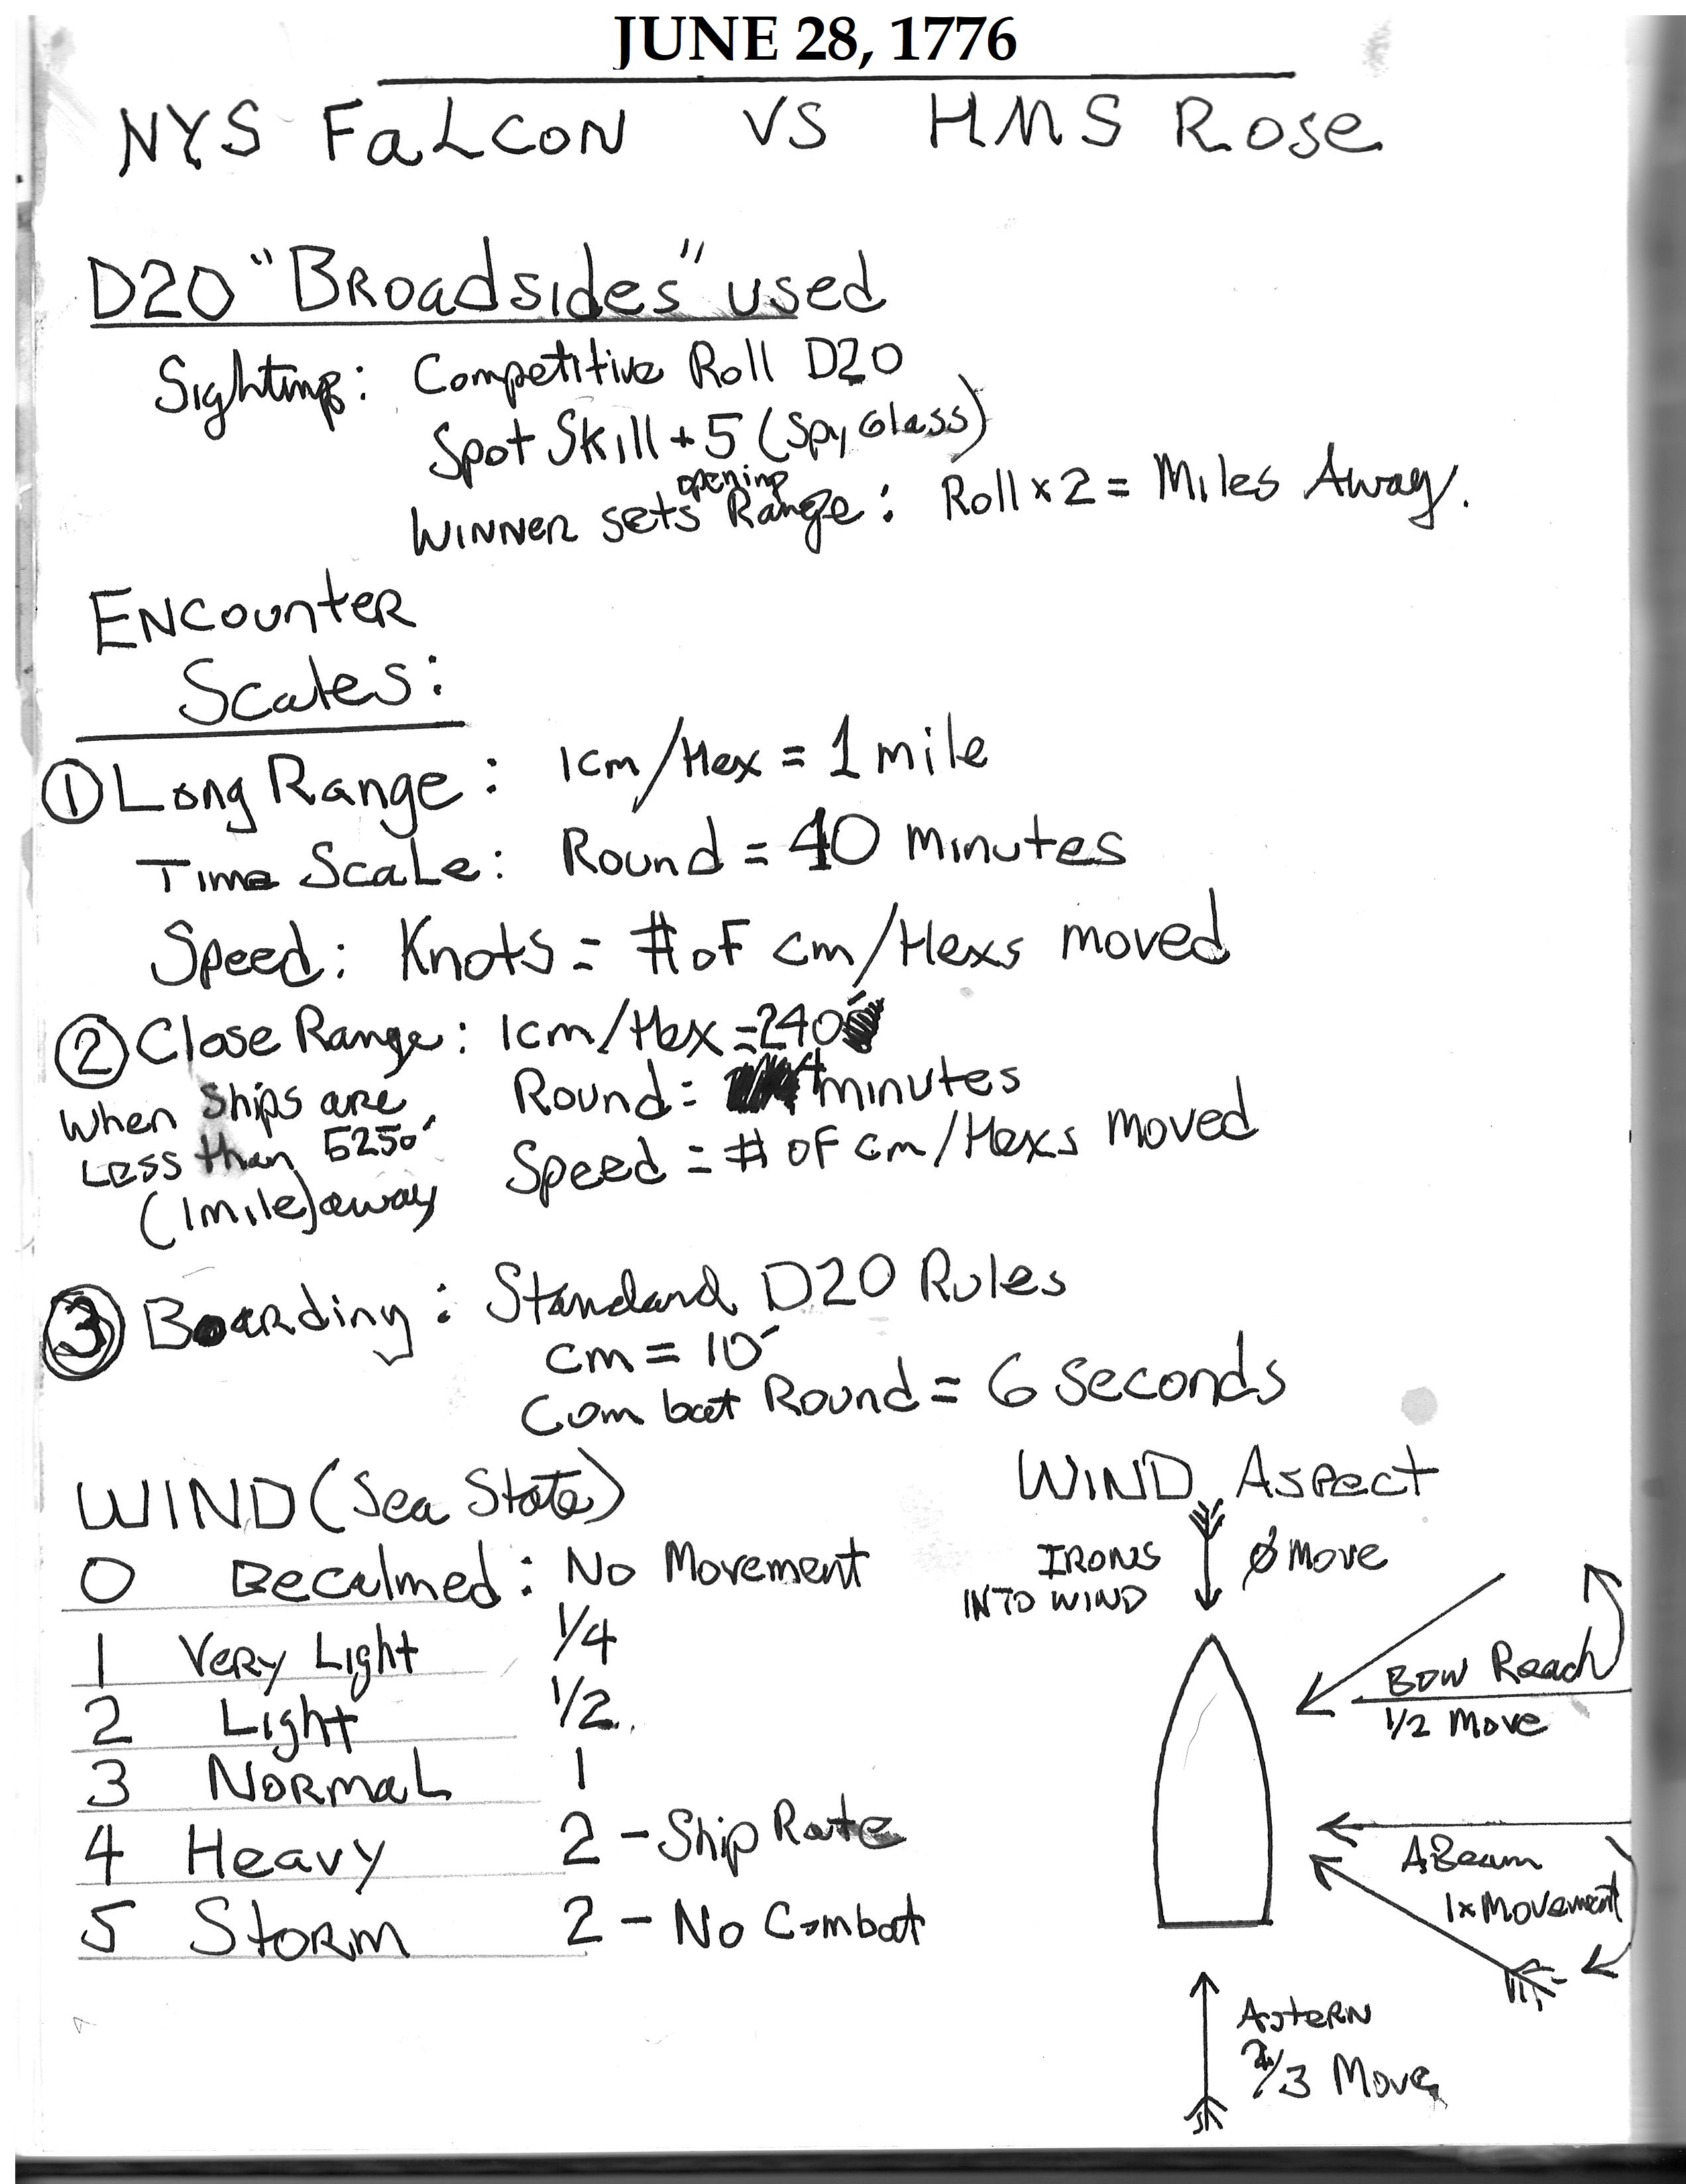 JUNE 28, 1776
NYS FaLCON VS HMS Rose
D20 "Broadsides" used
Sighting: Competitive Roll D20
Spot Skill +5 (Spy Glass)
opening
WINNER sets Range: Roll x 2 = Miles Away.
ENCounteR
Scales:
① Long Range: 1cm/Hex = 1 mile
Time Scale: Round = 40 minutes
Speed: Knots = # of cm/Hexs moved
② Close Range: 1cm/Hex = 240'
When Ships are
Less than 5250'
(1mile) away
Round = 4 minutes
Speed = # of cm/Hexs moved
③ Boarding: Standard D20 Rules
cm = 10'
Combat Round = 6 seconds
WIND (Sea State)
0 Becalmed: No Movement
1 Very Light 1/4
2 Light 1/2
3 Normal 1
4 Heavy 2 - Ship Rate
5 Storm 2 - No Combat
WIND Aspect
IRONS
INTO WIND
Ø Move
Bow Reach
1/2 Move
ABeam
1x Movement
Astern
2/3 Move